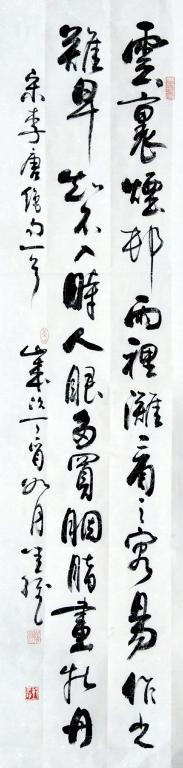 雲裏煙邨雨裡灘看之容易作之
難早知不入時人眼多買胭脂畫牡丹
宋李唐絶句一首 歲次丁酉如月